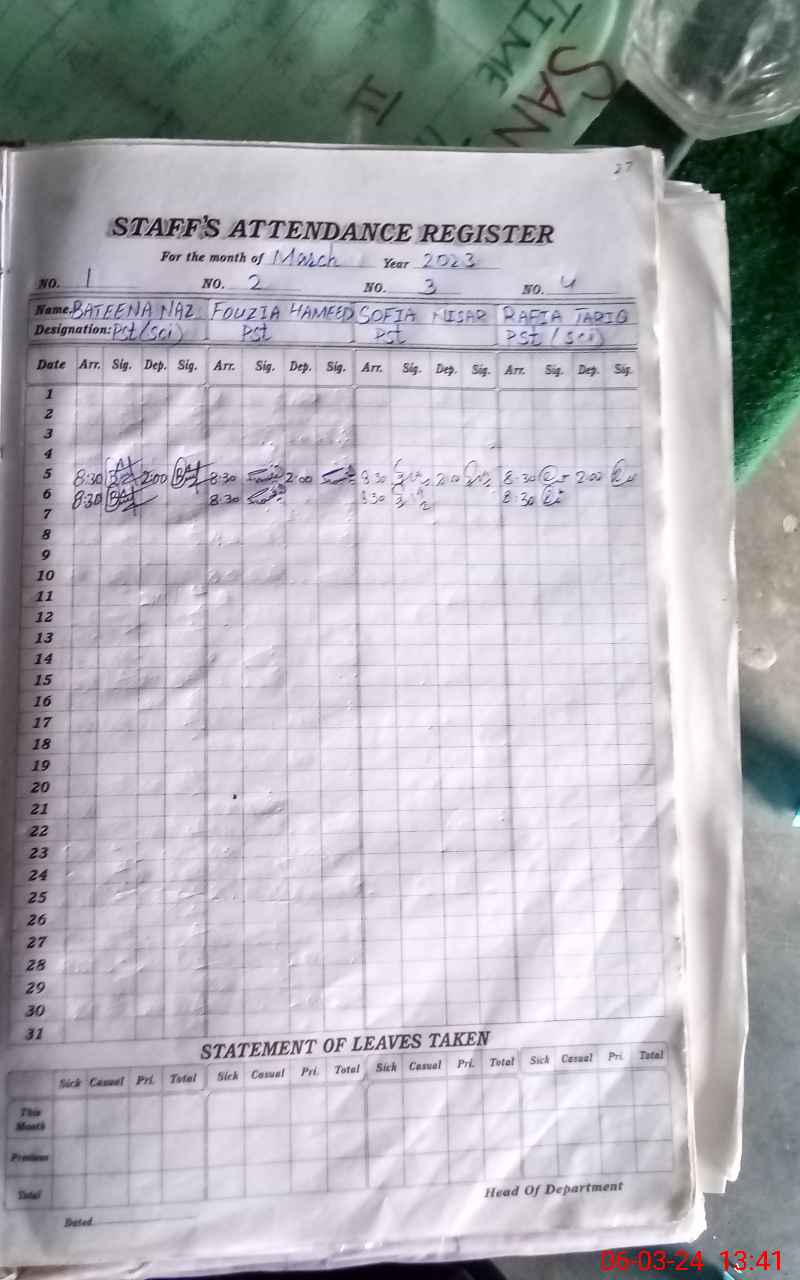 SAN
TIME
II
27
STAFF'S ATTENDANCE REGISTER
For the month of March Year 2023
NO. 1 NO. 2 NO. 3 NO. 4
Name. BATEENA NAZ FOUZIA HAMEED SOFIA NISAR RAFIA TARIQ
Designation: Pst/sci) Pst Pst PST / Sci)
Date Arr. Sig. Dep. Sig. Arr. Sig. Dep. Sig. Arr. Sig. Dep. Sig. Arr. Sig. Dep. Sig.
1
2
3
4
5 8:30 2:00 8:30 2:00 8:30 2:00 8:30 2:00
6 8:30 8:30 8:30 8:30
7
8
9
10
11
12
13
14
15
16
17
18
19
20
21
22
23
24
25
26
27
28
29
30
31
STATEMENT OF LEAVES TAKEN
Sick Casual Pri. Total Sick Casual Pri. Total Sick Casual Pri. Total Sick Casual Pri. Total
This
Month
Previous
Total
Head Of Department
Dated
06-03-24 13:41